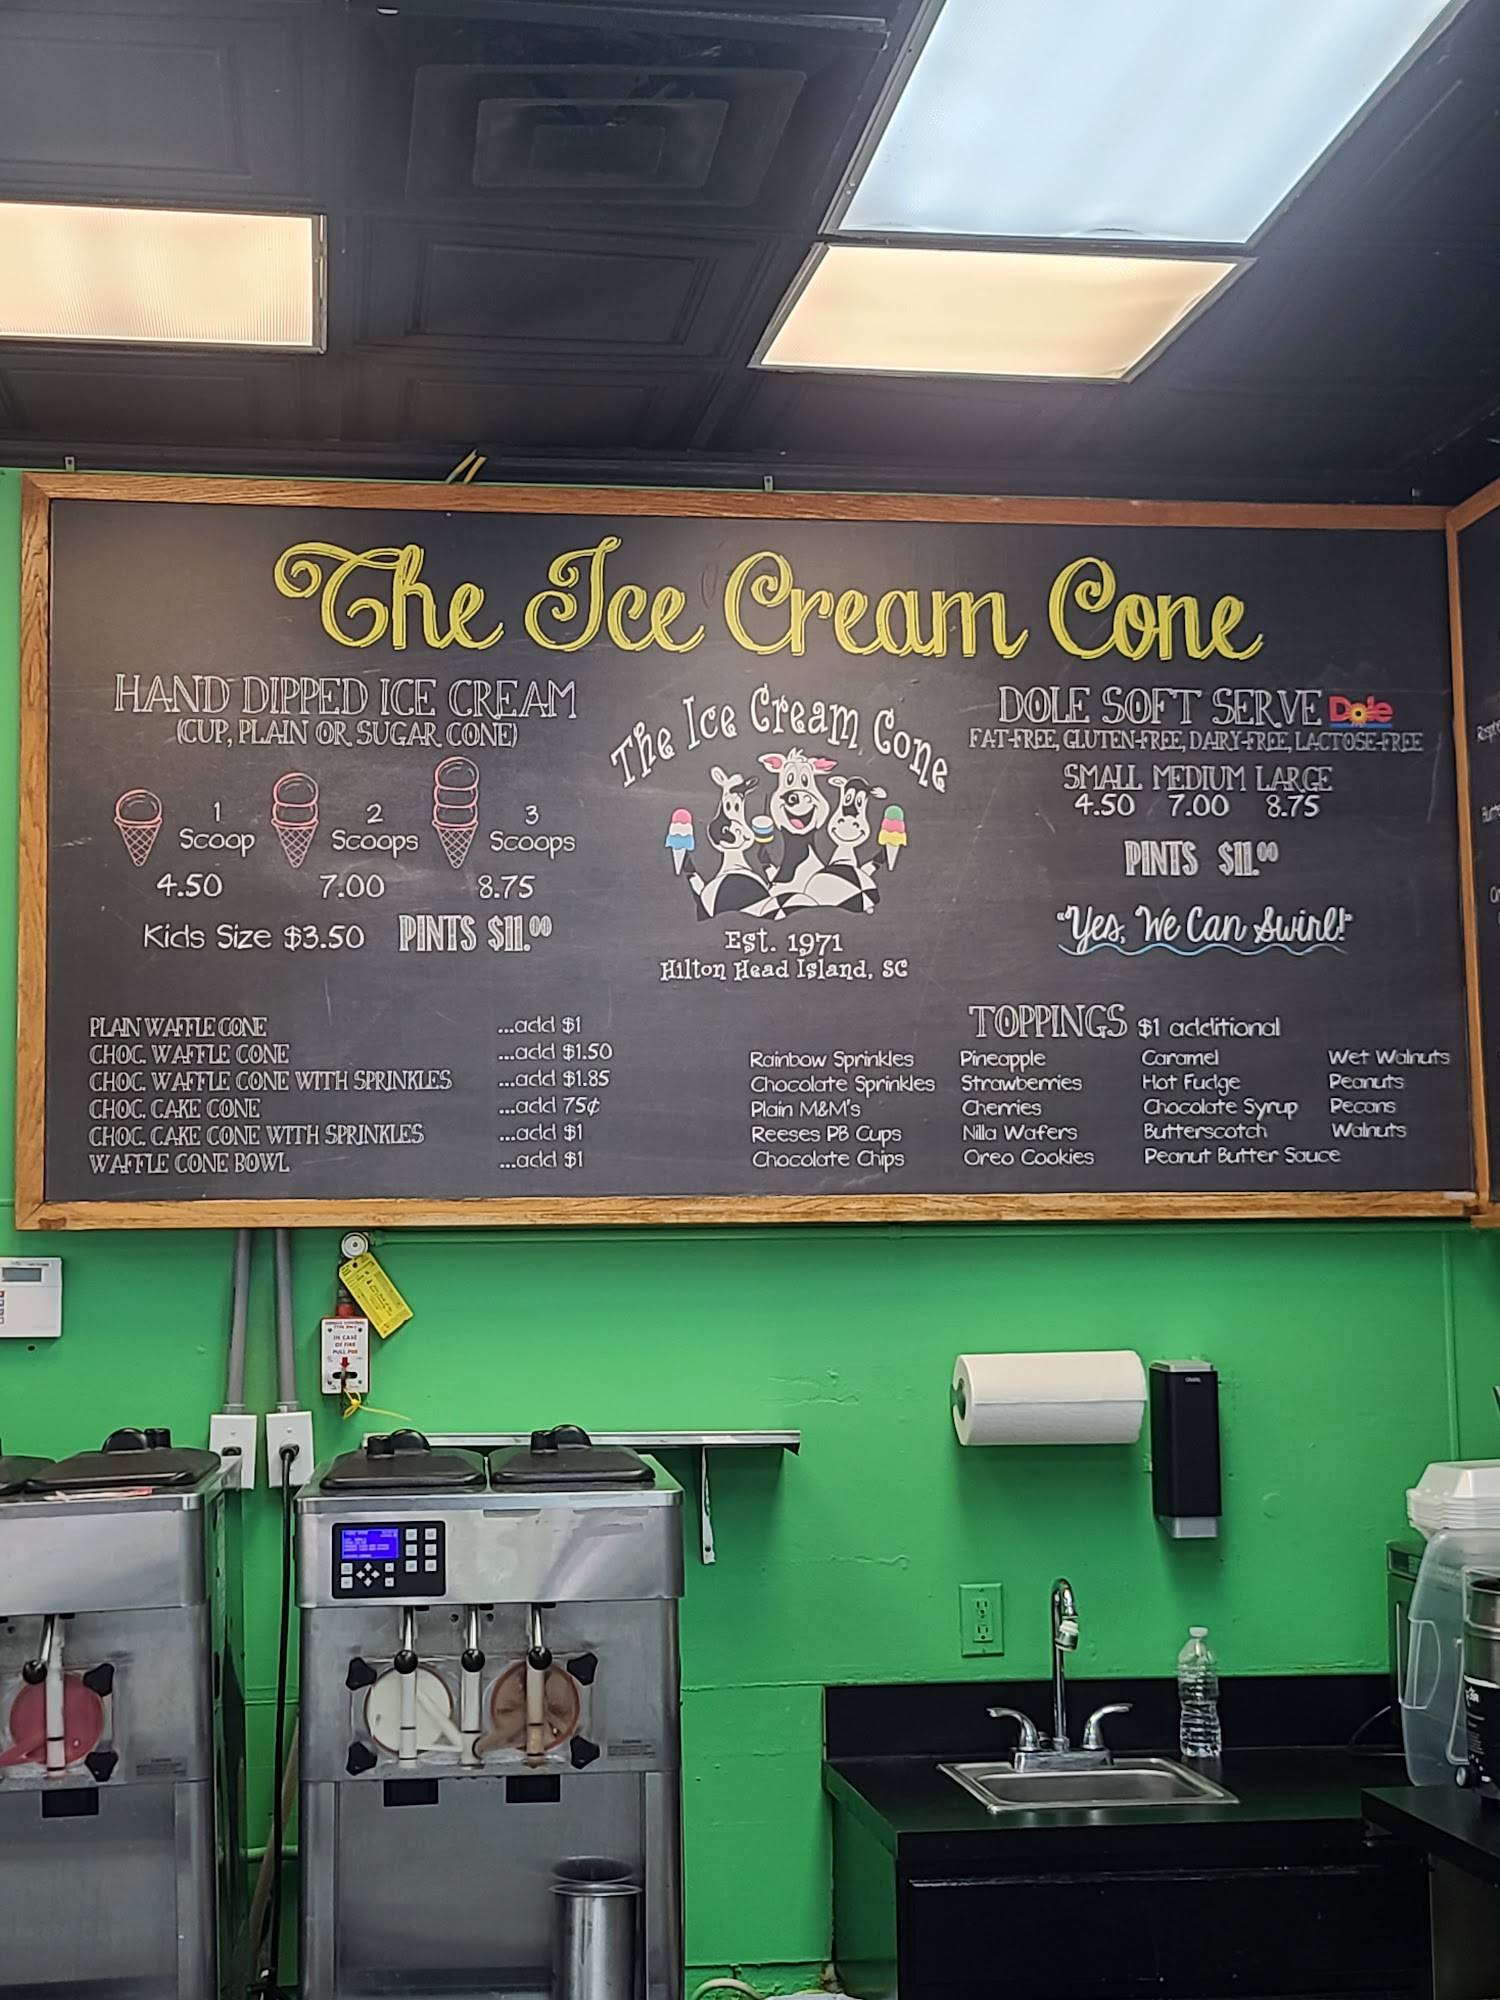 The Ice Cream Cone
HAND DIPPED ICE CREAM
(CUP, PLAIN OR SUGAR CONE)
1 Scoop
2 Scoops
3 Scoops
4.50 7.00 8.75
Kids Size $3.50 PINTS $11.00
The Ice Cream Cone
Est. 1971
Hilton Head Island, SC
DOLE SOFT SERVE Dole
FAT-FREE, GLUTEN-FREE, DAIRY-FREE, LACTOSE-FREE
SMALL MEDIUM LARGE
4.50 7.00 8.75
PINTS $11.00
"Yes, We Can Swirl!"
PLAIN WAFFLE CONE ...add $1
CHOC. WAFFLE CONE ...add $1.50
CHOC. WAFFLE CONE WITH SPRINKLES ...add $1.85
CHOC. CAKE CONE ...add 75¢
CHOC. CAKE CONE WITH SPRINKLES ...add $1
WAFFLE CONE BOWL ...add $1
TOPPINGS $1 additional
Rainbow Sprinkles Pineapple Caramel Wet Walnuts
Chocolate Sprinkles Strawberries Hot Fudge Peanuts
Plain M&M's Cherries Chocolate Syrup Pecans
Reeses PB Cups Nilla Wafers Butterscotch Walnuts
Chocolate Chips Oreo Cookies Peanut Butter Sauce
IN CASE
OF FIRE
PULL PIN